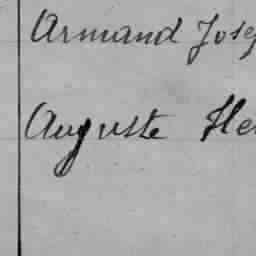 Armand Jose
Auguste He